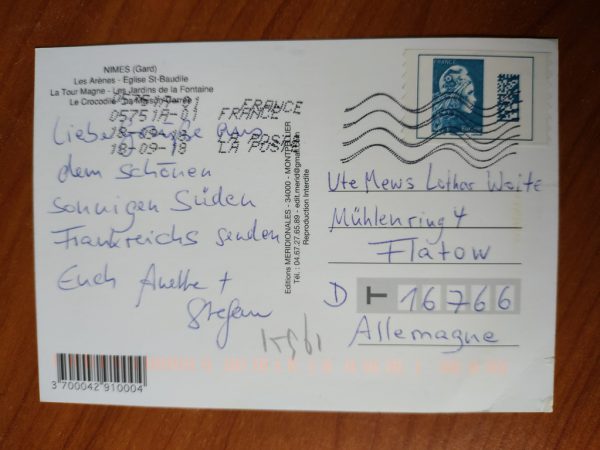 NIMES (Gard)
Les Arènes - Eglise St-Baudile
La Tour Magne - Les Jardins de la Fontaine
Le Crocodile - La Maison Carrée
05751A-01 FRANCE
05751A-01 FRANCE
18-09-18 LA POSTE
18-09-18 LA POSTE
Liebe Grüße aus
dem schönen
sonnigen Süden
Frankreichs senden
Euch Anette +
Stefan
Editions MERIDIONALES - 34000 - MONTPELLIER
Tél. : 04.67.27.65.89 - edit.merid@gmail.com
Reproduction Interdite
FRANCE
Ute Mews Lothar Waite
Mühlenring 4
Flatow
D T 16766
Allemagne
3 700042 910004